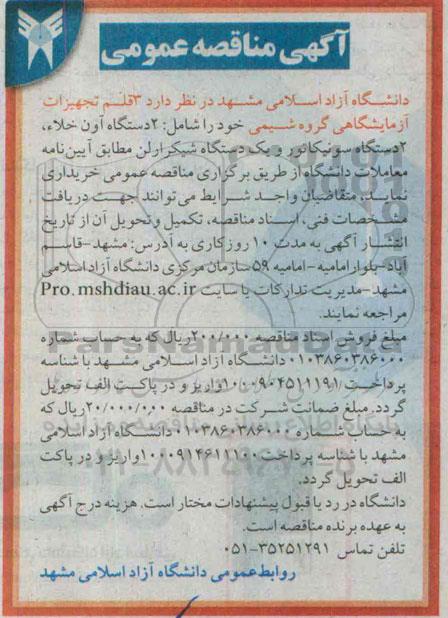 آگهی مناقصه عمومی
دانشگاه آزاد اسلامی مشهد در نظر دارد ۳قلم تجهیزات
آزمایشگاهی گروه شیمی خود را شامل: ۲دستگاه آون خلاء،
۲دستگاه سونیکاتور و یک دستگاه شیکر ارلن مطابق آیین‌نامه
معاملات دانشگاه از طریق برگزاری مناقصه عمومی خریداری
نماید. متقاضیان واجد شرایط می‌توانند جهت دریافت
مشخصات فنی، اسناد مناقصه، تکمیل و تحویل آن از تاریخ
انتشار آگهی به مدت ۱۰ روز کاری به آدرس: مشهد-قاسم
آباد-بلوار امامیه-امامیه ۵۹ سازمان مرکزی دانشگاه آزاد اسلامی
مشهد-مدیریت تدارکات یا سایت Pro.mshdiau.ac.ir
مراجعه نمایند.
مبلغ فروش اسناد مناقصه ۲۰۰/۰۰۰ریال که به حساب شماره
۰۱۰۳۸۶۰۳۸۶۰۰۰ دانشگاه آزاد اسلامی مشهد با شناسه
پرداخت ۱۰۰۰۹۰۴۵۱۱۱۹۱واریز و در پاکت الف تحویل
گردد. مبلغ ضمانت شرکت در مناقصه ۲۰/۰۰۰/۰۰۰ریال که
به حساب شماره ۰۱۰۳۸۶۰۳۸۶۰۰۰دانشگاه آزاد اسلامی
مشهد با شناسه پرداخت ۱۰۰۰۹۱۴۶۱۱۱۰۰واریز و در پاکت
الف تحویل گردد.
دانشگاه در رد یا قبول پیشنهادات مختار است. هزینه درج آگهی
به عهده برنده مناقصه است.
تلفن تماس ۳۵۲۵۱۲۹۱-۰۵۱
روابط عمومی دانشگاه آزاد اسلامی مشهد